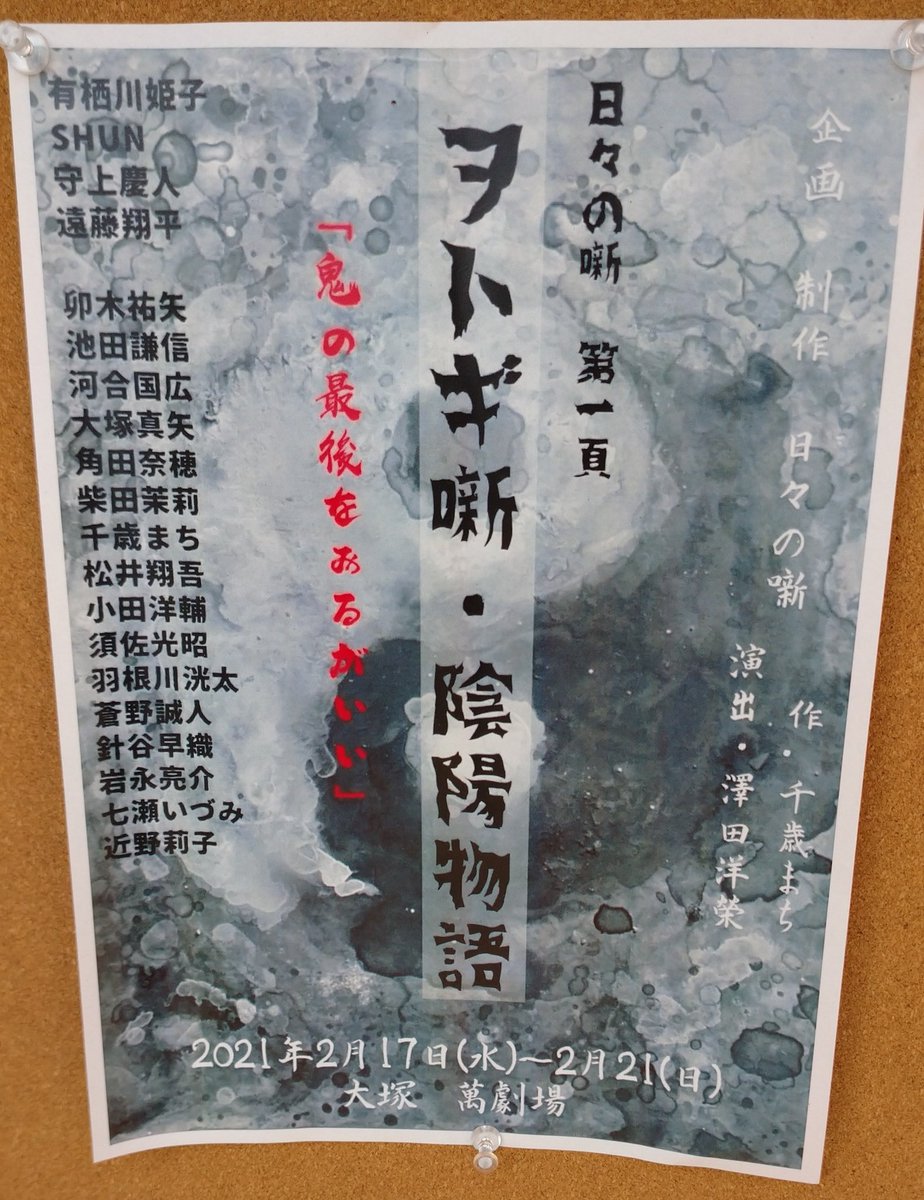 企画・制作 日々の噺
作・千歳まち
演出・澤田洋榮
日々の噺 第一頁
ヲトギ噺・陰陽物語
「鬼の最後なぁるがいい」
有栖川姫子
SHUN
守上慶人
遠藤翔平
卯木祐矢
池田謙信
河合国広
大塚真矢
角田奈穂
柴田茉莉
千歳まち
松井翔吾
小田洋輔
須佐光昭
羽根川洸太
蒼野誠人
針谷早織
岩永亮介
七瀬いづみ
近野莉子
2021年2月17日(水)~2月21(日)
大塚 萬劇場